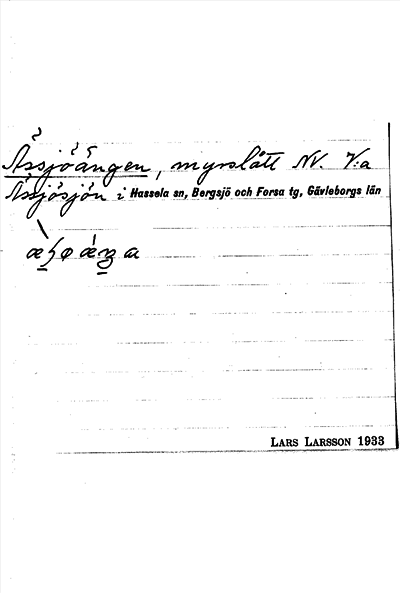 Ässjöängen, myrslått NV. V:a
Ässjösjön i Hassela sn, Bergsjö och Forsa tg, Gävleborgs län
LARS LARSSON 1933